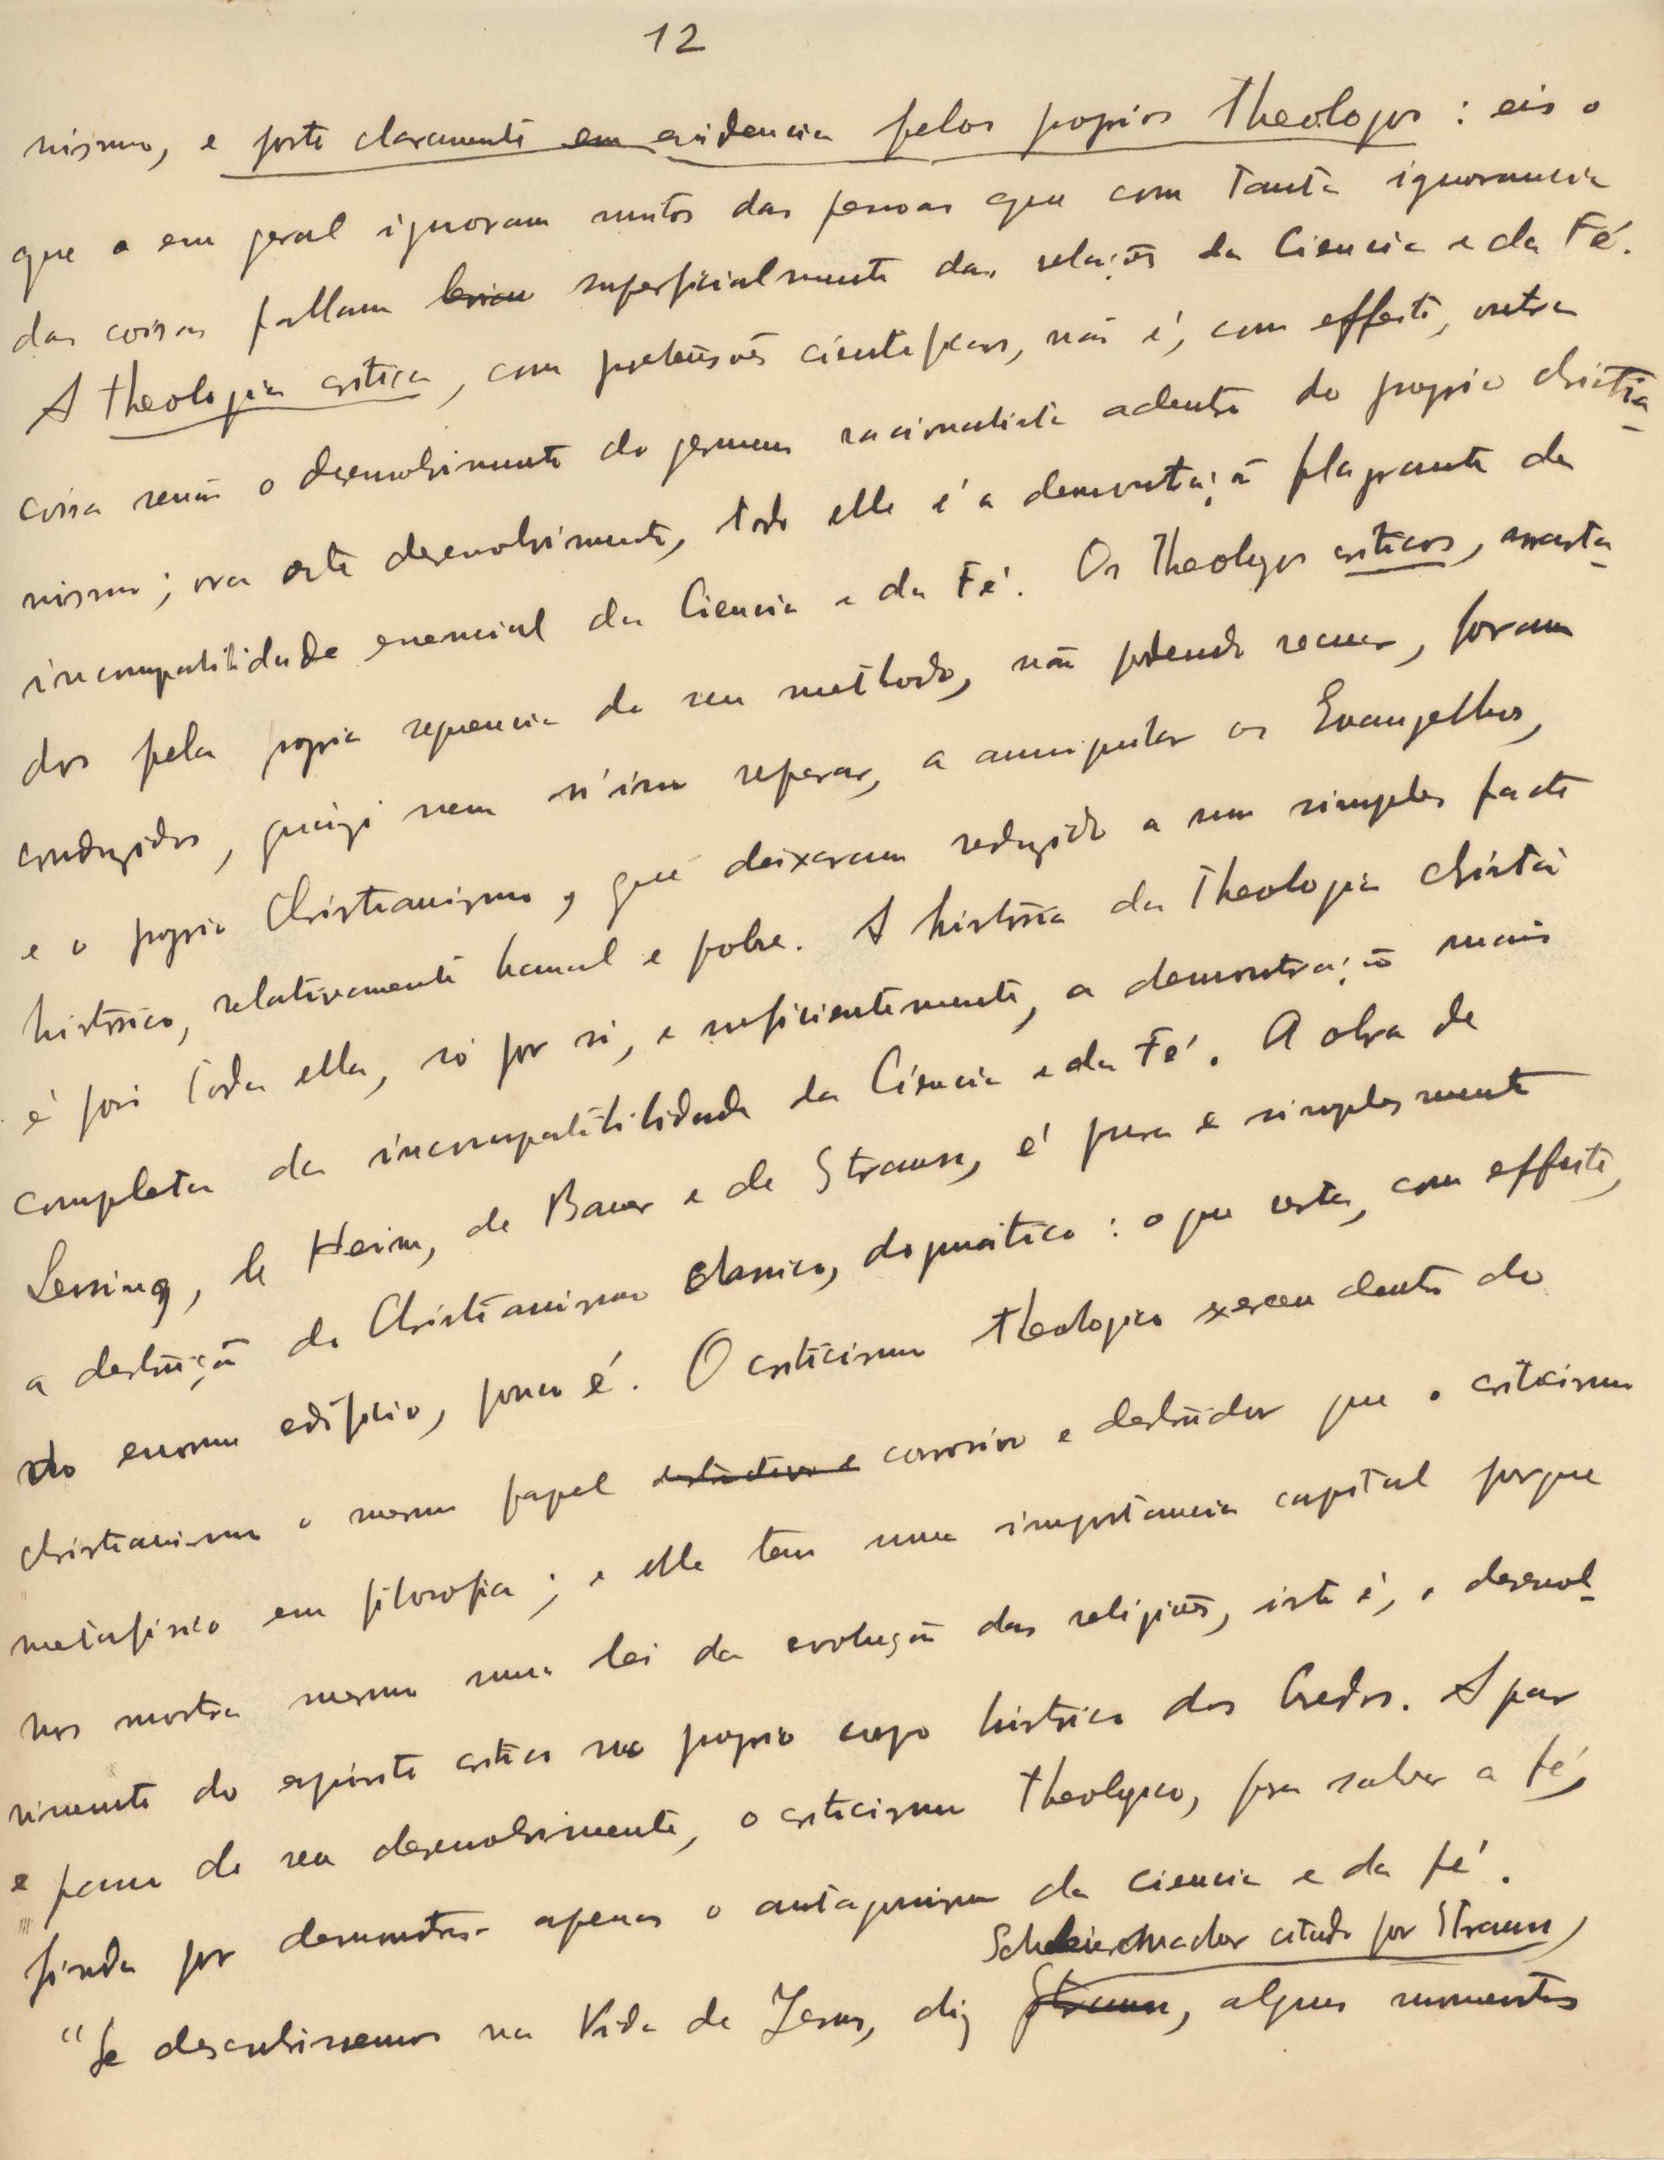 12
nismo, e posto claramente em evidencia pelos proprios Theologos : eis o
que o em geral ignoram muitos das pessoas que com tanta ignorancia
das coisas fallam superficialmente das relações da Ciencia e da Fé.
A Theologia critica, com pretensões cientificas, não é, com effeito, outra
coisa senão o desenvolvimento do germen racionalista adentro do proprio christia-
nismo; ora este desenvolvimento, todo elle é a demonstração flagrante da
incompatibilidade essencial da Ciencia e da Fé. Os Theologos criticos, arrasta-
dos pela propria sequencia do seu methodo, não podendo recuar, foram
conduzidos, quiçá nem n'isso reparar, a aniquilar os Evangelhos,
e o proprio Christianismo, que deixaram reduzido a um simples facto
historico, relativamente banal e pobre. A historia da Theologia christã
é pois toda ella, só por si, e suficientemente, a demonstração mais
completa da incompatibilidade da Ciencia e da Fé. A obra de
Lessing, de Heim, de Bauer e de Strauss, é pura e simplesmente
a destruição do Christianismo classico, dogmatico : o que resta, com effeito,
do enorme edificio, pouco é. O criticismo theologico exerceu dentro do
christianismo o mesmo papel corrosivo e destruidor que o criticismo
metafisico em filosofia ; e elle tem uma importancia capital porque
nos mostra mesmo uma lei da evolução das religiões, isto é, o desenvol-
vimento do espirito critico no proprio corpo historico dos Credos. A par
e passo do seu desenvolvimento, o criticismo theologico, para salvar a fé,
finda por demonstrar apenas o antagonismo da ciencia e da fé.
Schleiermacher citado por Strauss,
"Se descubrissemos na Vida de Jesus, diz Strauss, alguns momentos